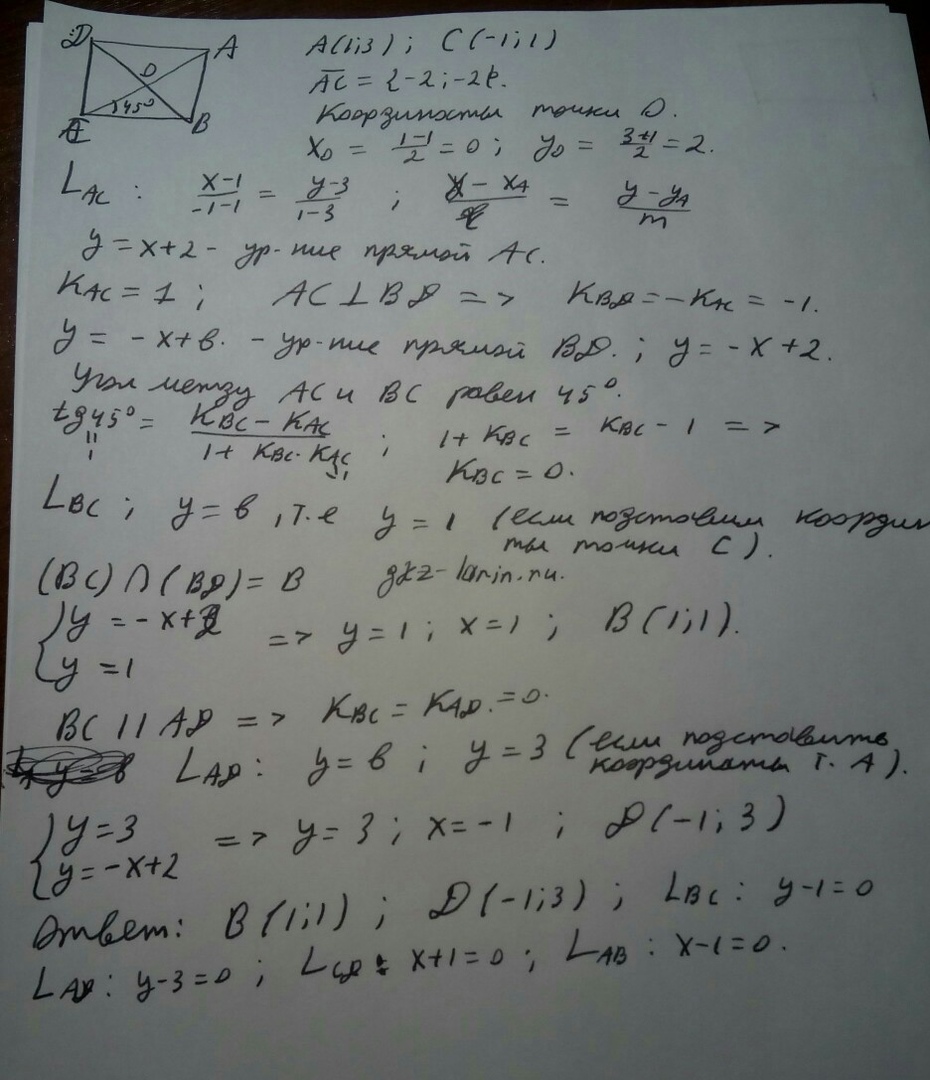 D A
O
45°
C B
A(1;3) ; C(-1;1)
AC = {-2;-2}.
Координаты точки O.
x₀ = (1-1)/2 = 0 ; y₀ = (3+1)/2 = 2.
L_AC : (x-1)/(-1-1) = (y-3)/(1-3) ; (x-x_A)/ℓ = (y-y_A)/m
y = x+2 - ур-ние прямой AC.
K_AC = 1 ; AC ⊥ BD => K_BD = -K_AC = -1.
y = -x+b. - ур-ние прямой BD. ; y = -x+2.
Угол между AC и BC равен 45°.
tg45° = (K_BC - K_AC)/(1+ K_BC·K_AC) ; 1+K_BC = K_BC - 1 =>
K_BC = 0.
L_BC ; y = b , т.е y = 1 (если подставим координ
ты точки C).
(BC) ∩ (BD) = B gdz-larin.ru.
{ y = -x+2
y = 1 => y = 1 ; x = 1 ; B(1;1).
BC || AD => K_BC = K_AD. = 0.
L_AD : y = b ; y = 3 (если подставить
координаты т. A).
{ y = 3
y = -x+2 => y = 3 ; x = -1 ; D(-1;3)
Ответ: B(1;1) ; D(-1;3) ; L_BC : y-1=0
L_AD : y-3=0 ; L_CD : x+1=0 ; L_AB : x-1=0.